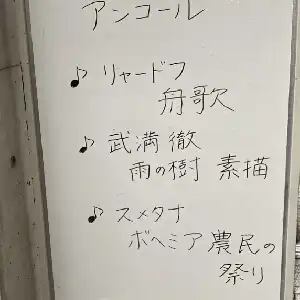 アンコール
♪ リャードフ
舟歌
♪ 武満 徹
雨の樹 素描
♪ スメタナ
ボヘミア農民の
祭り